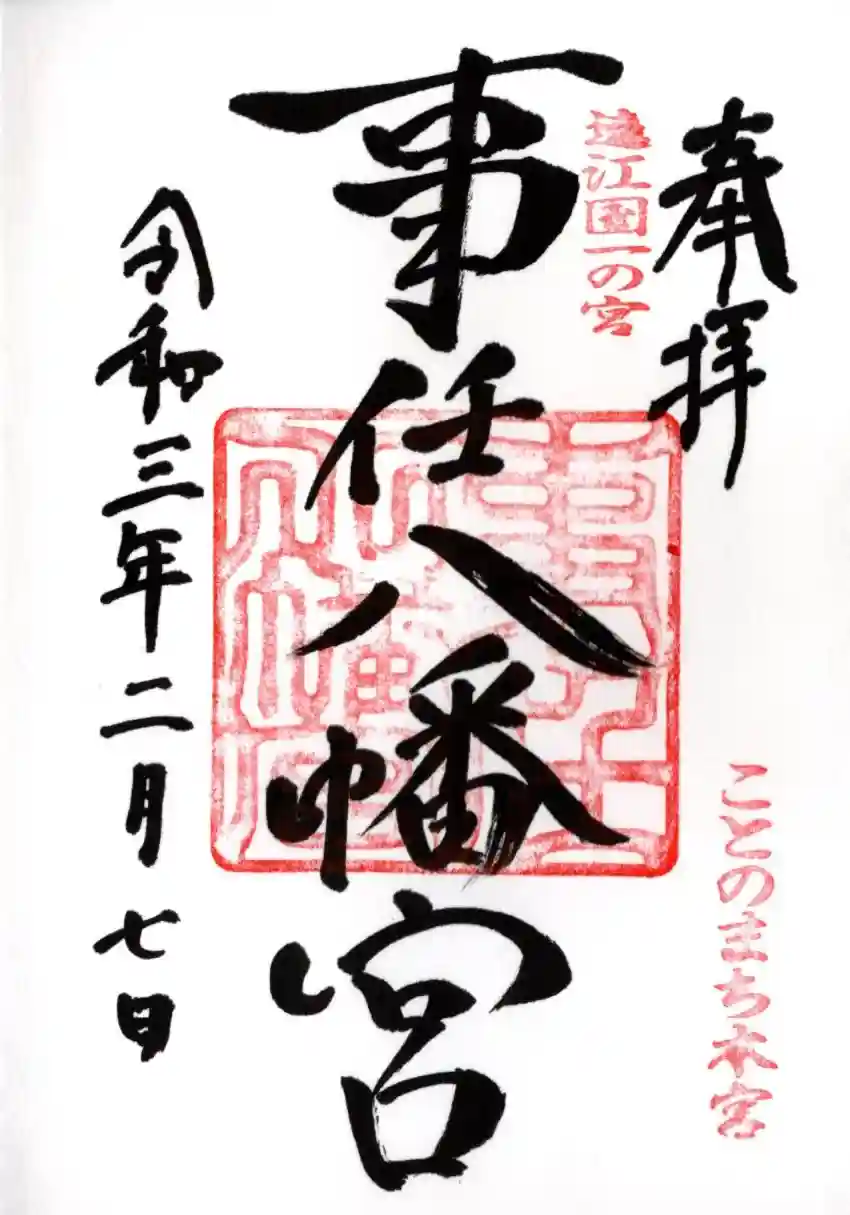 奉拝
ことのまち本宮
遠江国一の宮
事任八幡宮
令和三年二月七日